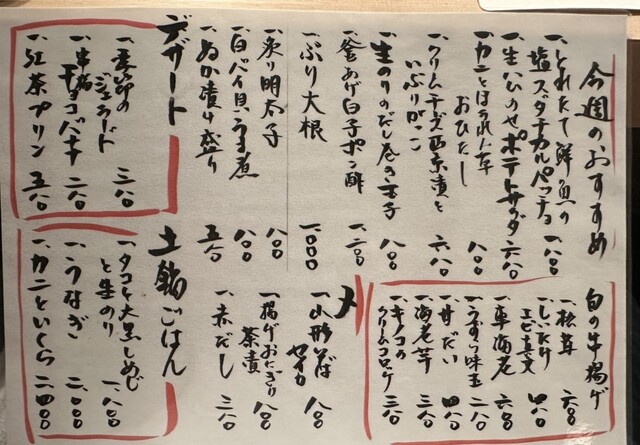 今週のおすすめ
一、とれたて鮮魚の
塩スダチカルパッチョ 一、八〇〇
一、生ハムのせポテトサラダ 六八〇
一、カニとほうれん草
おひたし 八〇〇
一、クリームチーズ西京漬と
いぶりがっこ 六八〇
一、生のりのだし巻き玉子 八〇〇
一、釜あげ白子ポン酢 一、二〇〇
一、ぶり大根 一、〇〇〇
一、炙り明太子 八〇〇
一、白バイ貝うま煮 八〇〇
一、ぬか漬け盛り 五八〇
デザート
一、
ジェラート 三八〇
一、串揚
チョコバナナ 二八〇
一、紅茶プリン 五八〇
旬の串揚げ
一、松茸 六〇〇
一、しいたけ
エビ真丈 四八〇
一、車海老 六〇〇
一、うずら味玉 二八〇
一、甘だい 四八〇
一、海老芋 三八〇
一、キノコの
クリームコロッケ 三八〇
〆
一、山形そば
セイカ 八〇〇
一、揚げおにぎり
茶漬 八〇〇
一、赤だし 三八〇
土鍋ごはん
一、タコと大黒しめじ
と生のり 一、八〇〇
一、うなぎ 二、〇〇〇
一、カニといくら 二、四〇〇